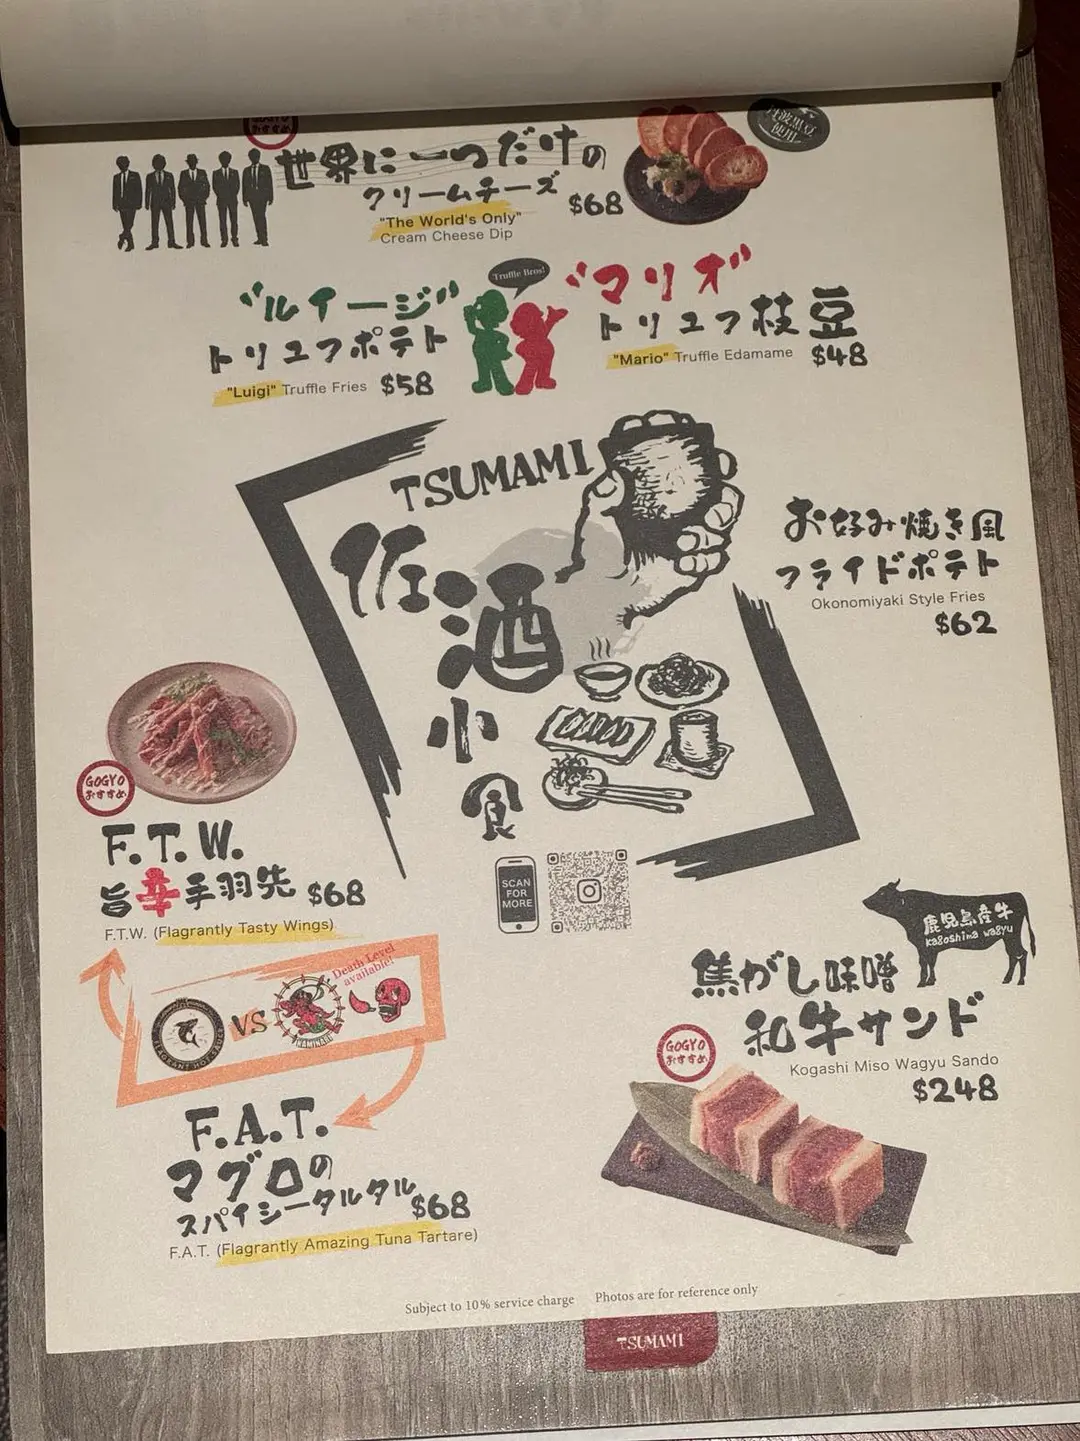 おすすめ
世界に一つだけの
クリームチーズ
$68
"The World's Only"
Cream Cheese Dip
使用!
Truffle Bros!
"ルイージ"
トリュフポテト
"Luigi" Truffle Fries $58
"マリオ"
トリュフ枝豆
"Mario" Truffle Edamame $48
TSUMAMI
佐酒小食
お好み焼き風
フライドポテト
Okonomiyaki Style Fries
$62
GOGYO
おすすめ
F.T.W.
旨辛手羽先 $68
F.T.W. (Flagrantly Tasty Wings)
SCAN
FOR
MORE
FLAGRANT HOT SAUCE
VS
KAMINARI
Death Level
available!
F.A.T.
マグロの
スパイシータルタル $68
F.A.T. (Flagrantly Amazing Tuna Tartare)
鹿児島産牛
kagoshima wagyu
焦がし味噌
和牛サンド
GOGYO
おすすめ
Kogashi Miso Wagyu Sando
$248
Subject to 10% service charge Photos are for reference only
TSUMAMI